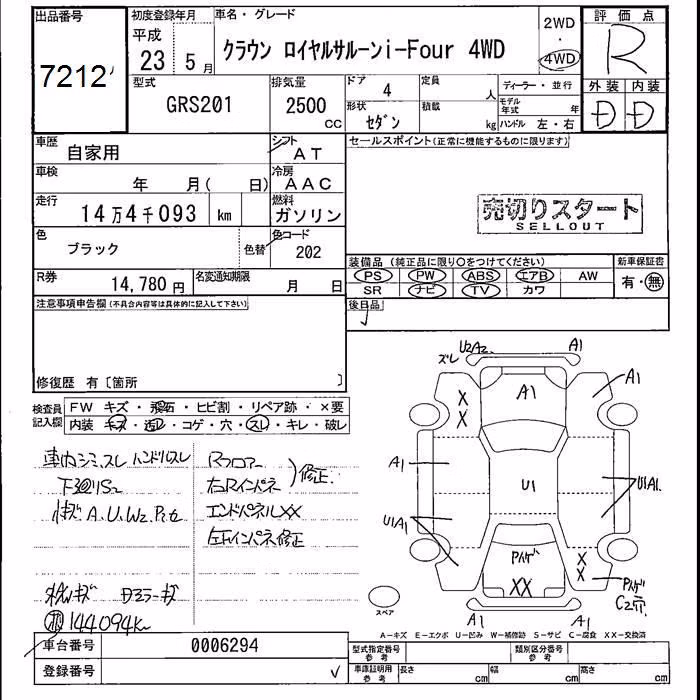 出品番号
7212
初度登録年月
平成
23 5月
車名・グレード
クラウン ロイヤルサルーンi-Four 4WD
2WD
・
4WD
評価点
R
外装 内装
D D
型式
GRS201
排気量
2500
CC
ドア
4
定員
人
形状
セダン
積載
kg
ディーラー・並行
モデル年式 年
ハンドル 左・右
車歴
自家用
シフト
AT
車検
年 月( 日)
冷房
AAC
走行
14万4千093 km
燃料
ガソリン
色
ブラック
色替
色コード
202
R券
14,780円
名変通知期限
月 日
セールスポイント(正常に機能するものに限ります)
売切りスタート
SELLOUT
装備品(純正品に限り○をつけてください)
PS PW ABS エアB AW
SR ナビ TV カワ
新車保証書
有・無
後日品
注意事項申告欄(不具合内容等は具体的に記入して下さい)
修復歴 有〔箇所 〕
検査員記入欄
FW キズ・飛石・ヒビ割・リペア跡・×要
内装 キズ・汚レ・コゲ・穴・スレ・キレ・破レ
車内シミ、スレ ハンドルスレ
下廻りS2
A、U、W2、P、E
Rフロアー
右Rインパネ
修正
エンドパネルXX
左Rインパネ修正
ドアミラーキズ
144094km
ズレ
U2A2
A1
A1
A1
X
X
A1
U1
U1A1
U1A1
Pハゲ
XX
X
X
Pハゲ
C2穴
A1
A1
スペア
A-キズ E-エクボ U-凹み W-補修跡 S-サビ C-腐食 XX-交換済
車台番号
0006294
登録番号
型式指定番号
参考
類別区分番号
参考
車庫証明用
参考
長さ cm
幅 cm
高さ cm